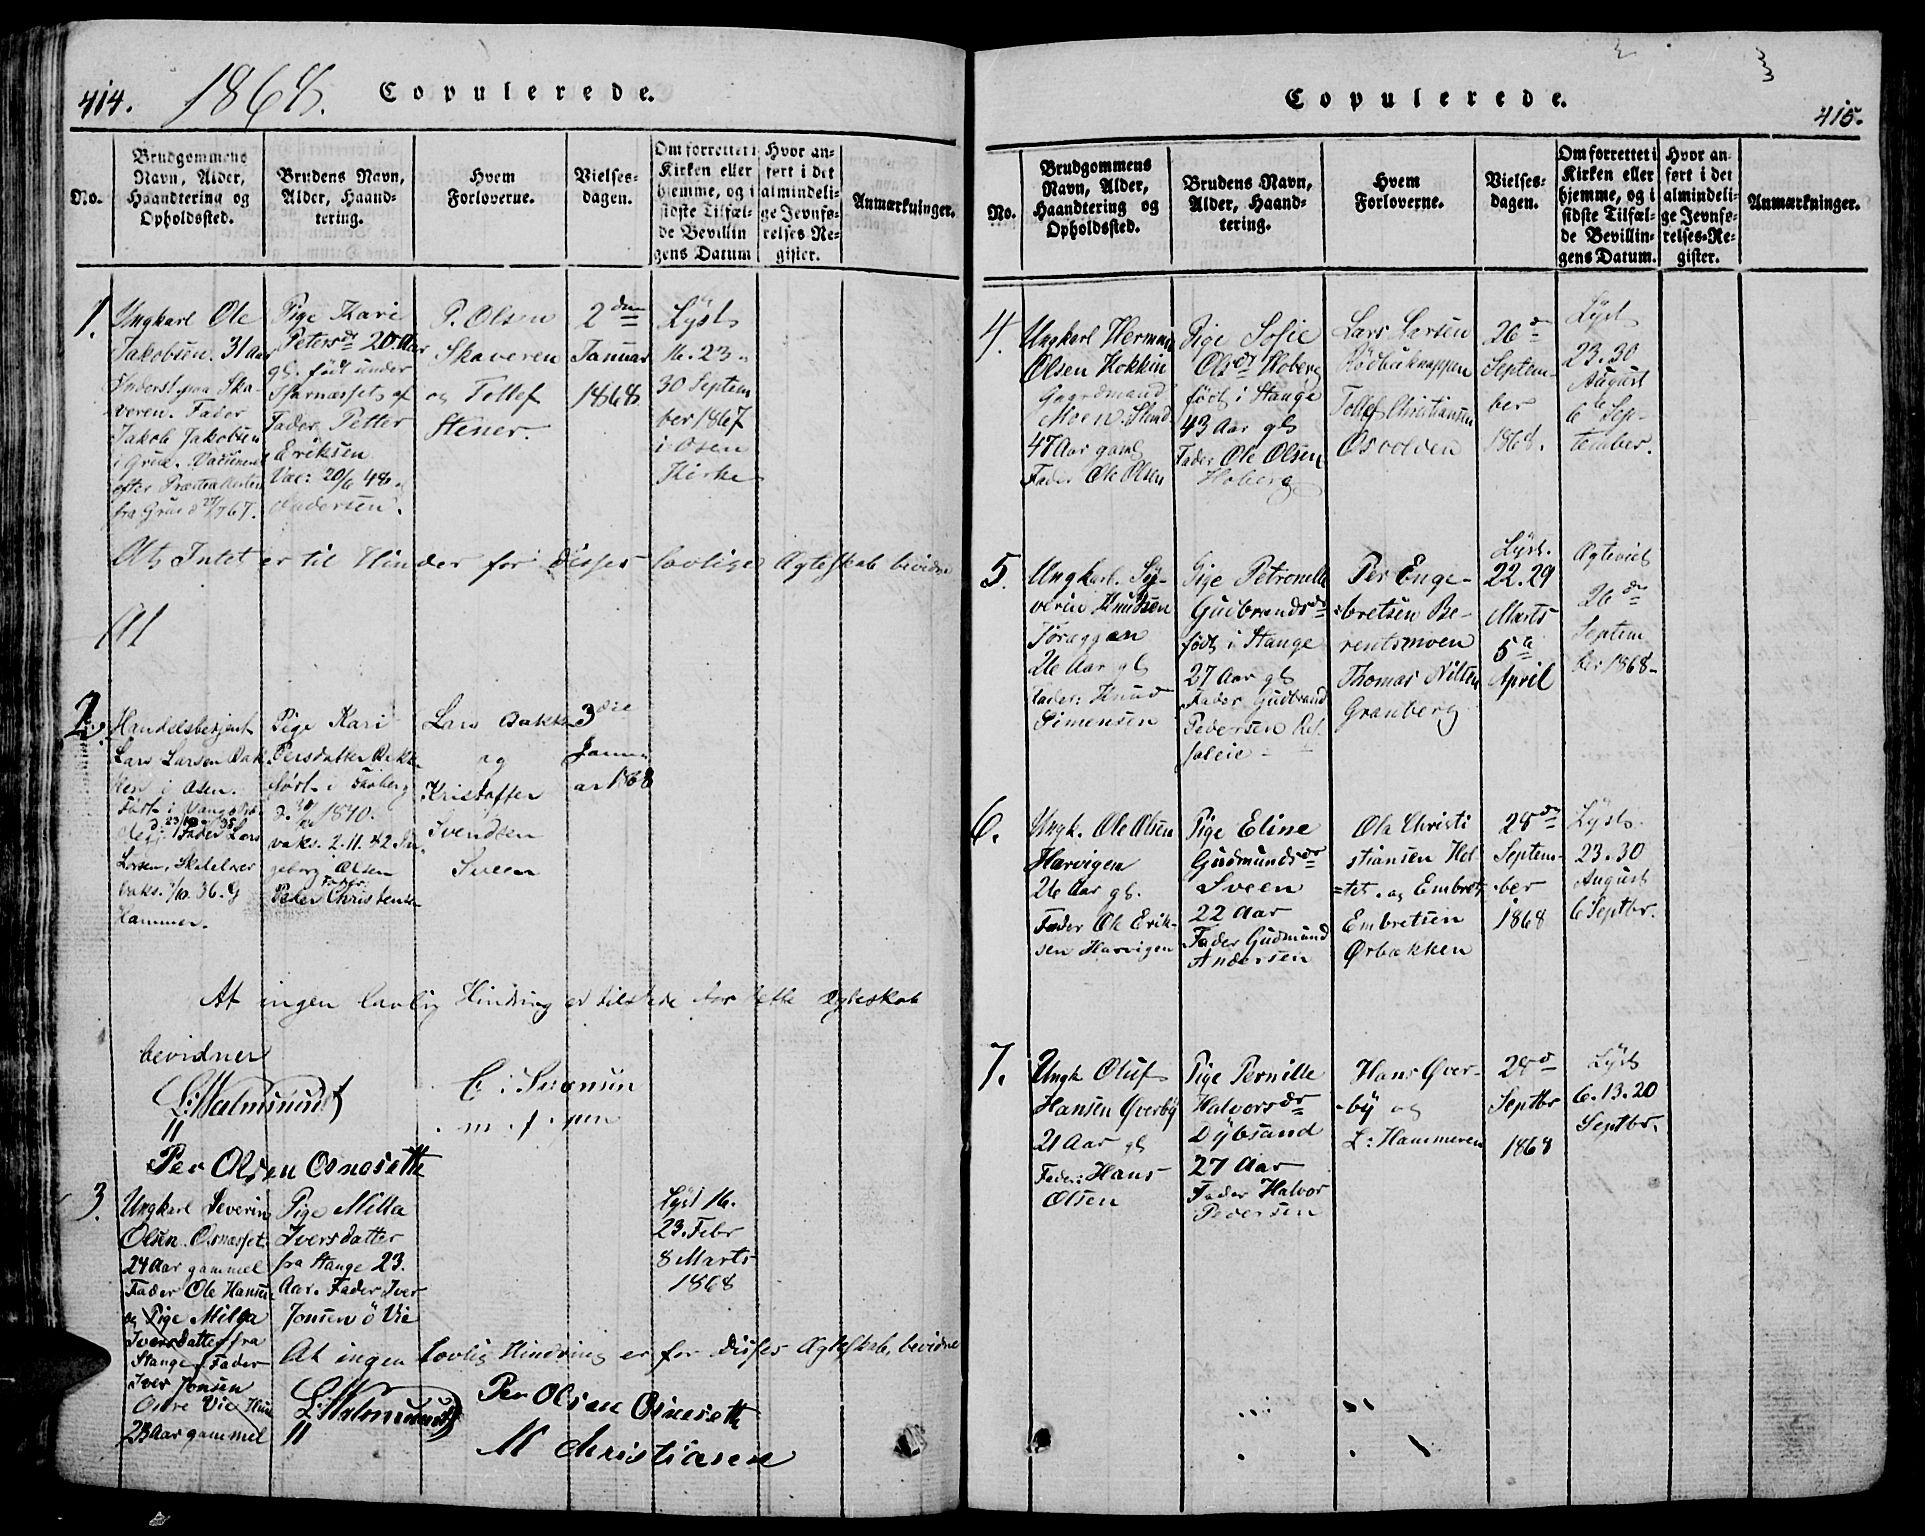 414.
1868.
Copulerede.
No.
Brudgommens
Navn, Alder,
Haandtering og
Opholdssted.
Brudens Navn,
Alder, Haand-
tering.
Hvem
Forloverne.
Vielses-
dagen.
Om forrettet i
Kirken eller
hjemme, og i
sidste Tilfæl-
de Bevillin
gens Datum
Hvor an-
ført i det
almindeli-
ge Jevnfø-
relses Re-
gister.
Anmærkninger.
1.
Ungkarl Ole
Jakobsen. 31 Aar
Inderst paa Ska-
veren. Fader
Jakob Jakobsen
i Grue. Vaccineret
efter
fra Grue
Pige Kari
Petersdr 20 Aar
gl. født under
af
Fader Petter
Eriksen
Vac: 20/6 48.
Andersen.
P. Olsen
Skaveren
og Tollef
Stener.
2den
Januar
1868
Lyst
16. 23.
30 Septem
ber 1867
i Osen
Kirke
At Intet er til Hinder for disses lovlige Ægteskab bevidne
2.
Handelsbetjent
Lars Larsen Bak
ken i Osen.
Født i Vang
Fader Lars
Larsen
vaks. 36. G
Hammer.
Pige Kari
Persdatter Bakke
født i
1840.
vaks. 2.11.42 In
geborg Olsen
Fader
Peder Christens.
Lars Bakke
og
Kristoffer
Svendsen
Sveen
3die
Janu
ar 1868
At ingen lovlig Hindring er tilstede for dette Ægteskab
bevidner
L: Malmsund
Per Olsen Osnesette
3.
Ungkarl Severin
Olsen Osnæsset.
24 Aar gammel
Fader Ole Hansen
og Pige Milla
Iversdatter fra
Stange Fader
Iver Jonsen
Østre Vie
23 Aar gammel
Pige Milla
Iversdatter
fra Stange 23.
Aar. Fader Iver
Jonsen ö Vie
Lyst 16.
23. Febr
8 Marts
1868
At ingen Lovlig Hindring er for disses Ægteskab, bevidne
L: Malmsund
Per Olsen Osnesette
M Christiasen
Copulerede.
415.
No.
Brudgommens
Navn, Alder,
Haandtering og
Opholdssted.
Brudens Navn,
Alder, Haand-
tering.
Hvem
Forloverne.
Vielses-
dagen.
Om forrettet i
Kirken eller
hjemme, og i
sidste Tilfæl-
de Bevillin-
gens Datum.
Hvor an-
ført i det
almindeli-
ge Jevnfø-
relses-Re-
gister.
Anmærkninger.
4.
Ungkarl Herman
Olsen Hokkin
Gaardmand
Moen
47 Aar gaml
Fader Ole Olsen
Pige Sofie
Olsdr Hoberg
født i Stange
43 Aar gl
Fader Ole Olsen
Hoberg
Lars Larsen
Rödbækneppen
Tollef Christiansen
Osvolden
26d
Septem-
ber
1868.
Lyst
23. 30
August
6te Sep-
tember.
5.
Ungkarl. Sy-
verin Knudsen
Joræggen
26 Aar gl
Fader: Knud
Simensen
Pige Petronelle
Gudbrandsdr
født i Stange
27 Aar gl
Fader Gudbrand
Pedersen
Per Enge-
bretsen Be-
rentsmoen
Thomas Nilsen
Granberg
Lyst.
22. 29
Marts
5te
April
Ægteviet
26de
Septem
ber 1868
6.
Ungk. Ole Olsen
Harvigen
26 Aar gl.
Fader Ole Erik-
sen Harvigen
Pige Eline
Gudmundsdr
Sveen
22 Aar
Fader Gudmund
Andersen
Ole Christi
stiansen Hol
-tet, og Embret
Embretsen
Ørbækken
28d
Septem-
ber
1868
Lyst.
23. 30
August
6 Septbr.
7.
Ungk Oluf
Hansen Øverby
21 Aar gl
Fader: Hans
Olsen
Pige Pernille
Halvorsdr
Dybsand
27 Aar
Fader Halvor
Pedersen
Hans Øver-
-by og
L: Hammeren
28d
Septbr
1868
Lyst
6. 13. 20
Septbr.